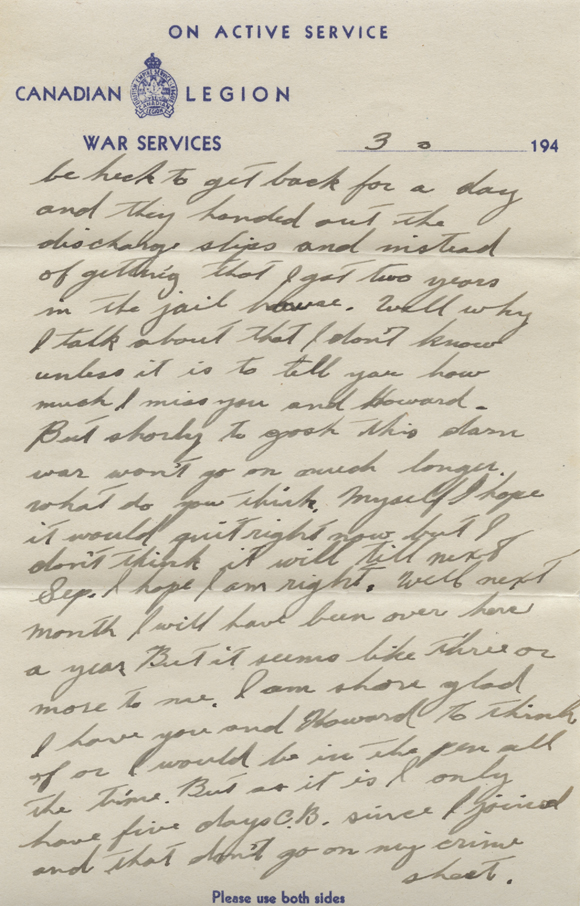 ON ACTIVE SERVICE
CANADIAN LEGION
WAR SERVICES 3 194
be heck to get back for a day
and they handed out the
discharge slips and instead
of getting that I got two years
in the jail house. Well why
I talk about that I don't know
unless it is to tell you how
much I miss you and Howard.
But shorly to gosh this darn
war won't go on much longer.
what do you think. Myself I hope
it would quit right now but I
don't think it will till next
Sep. I hope I am right. Well next
month I will have been over here
a year But it seems like three or
more to me. I am shore glad
I have you and Howard to think
of or I would be in the pen all
the time. But as it is I only
have five days C.B. since I joined
and that don't go on my crime
sheet.
Please use both sides